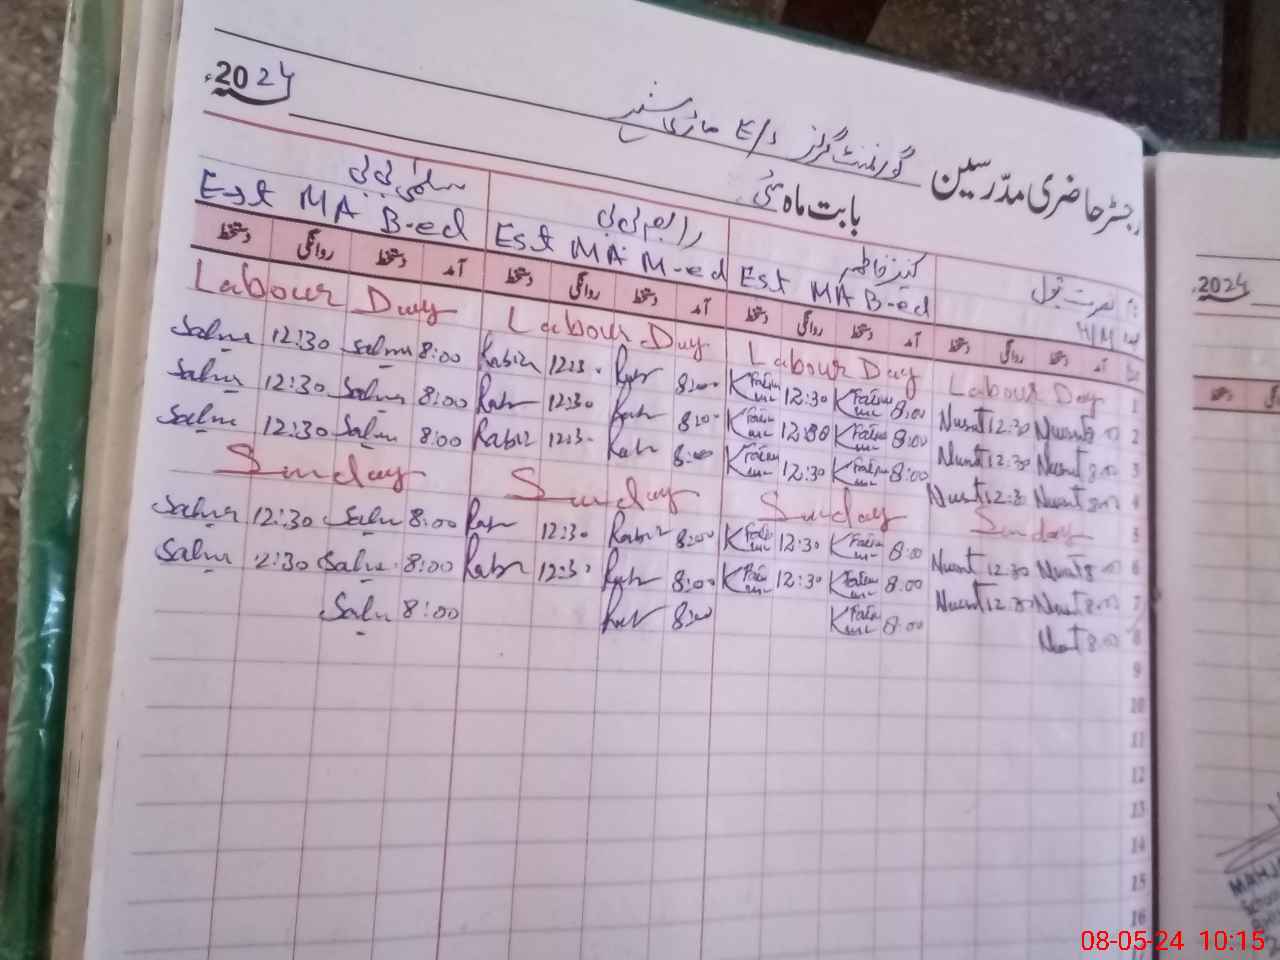 رجسٹر حاضری مدرسین گورنمنٹ گرلز E/S ماڑی
بابت ماہ مئی 2024ء
کنیز فاطمہ رابعہ بی بی سلمیٰ بی بی
Est MA B-ed Est MA M-ed Est MA B-ed
آمد دستخط روانگی دستخط آمد دستخط روانگی دستخط آمد دستخط روانگی دستخط آمد دستخط روانگی دستخط
Labour Day Labour Day Labour Day Labour Day 1
Salma 12:30 Salma 8:00 12:30 8:00 K Fatima 12:30 K Fatima 8:00 Nusrat 12:30 Nusrat 8:00 2
Salma 12:30 Salma 8:00 12:30 8:00 K Fatima 12:30 K Fatima 8:00 Nusrat 12:30 Nusrat 8:00 3
Salma 12:30 Salma 8:00 12:30 8:00 K Fatima 12:30 K Fatima 8:00 Nusrat 12:30 Nusrat 8:00 4
Sunday Sunday Sunday Sunday 5
Salma 12:30 Salma 8:00 12:30 8:00 K Fatima 12:30 K Fatima 8:00 Nusrat 12:30 Nusrat 8:00 6
Salma 12:30 Salma 8:00 12:30 8:00 K Fatima 12:30 K Fatima 8:00 Nusrat 12:30 Nusrat 8:00 7
Salma 8:00 8:00 K Fatima 8:00 Nusrat 8:00 8
9
10
11
12
13
14
15
16
2024ء
دستخط
08-05-24 10:15